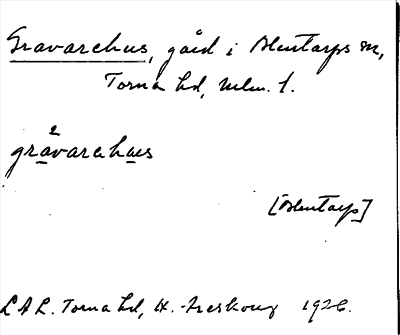 Gravarehus, gård i Blentarps sn,
Torna hd, Mlm. l.
2
gravarehus
[Blentarp]
LAL. Torna hd, H. 1926.